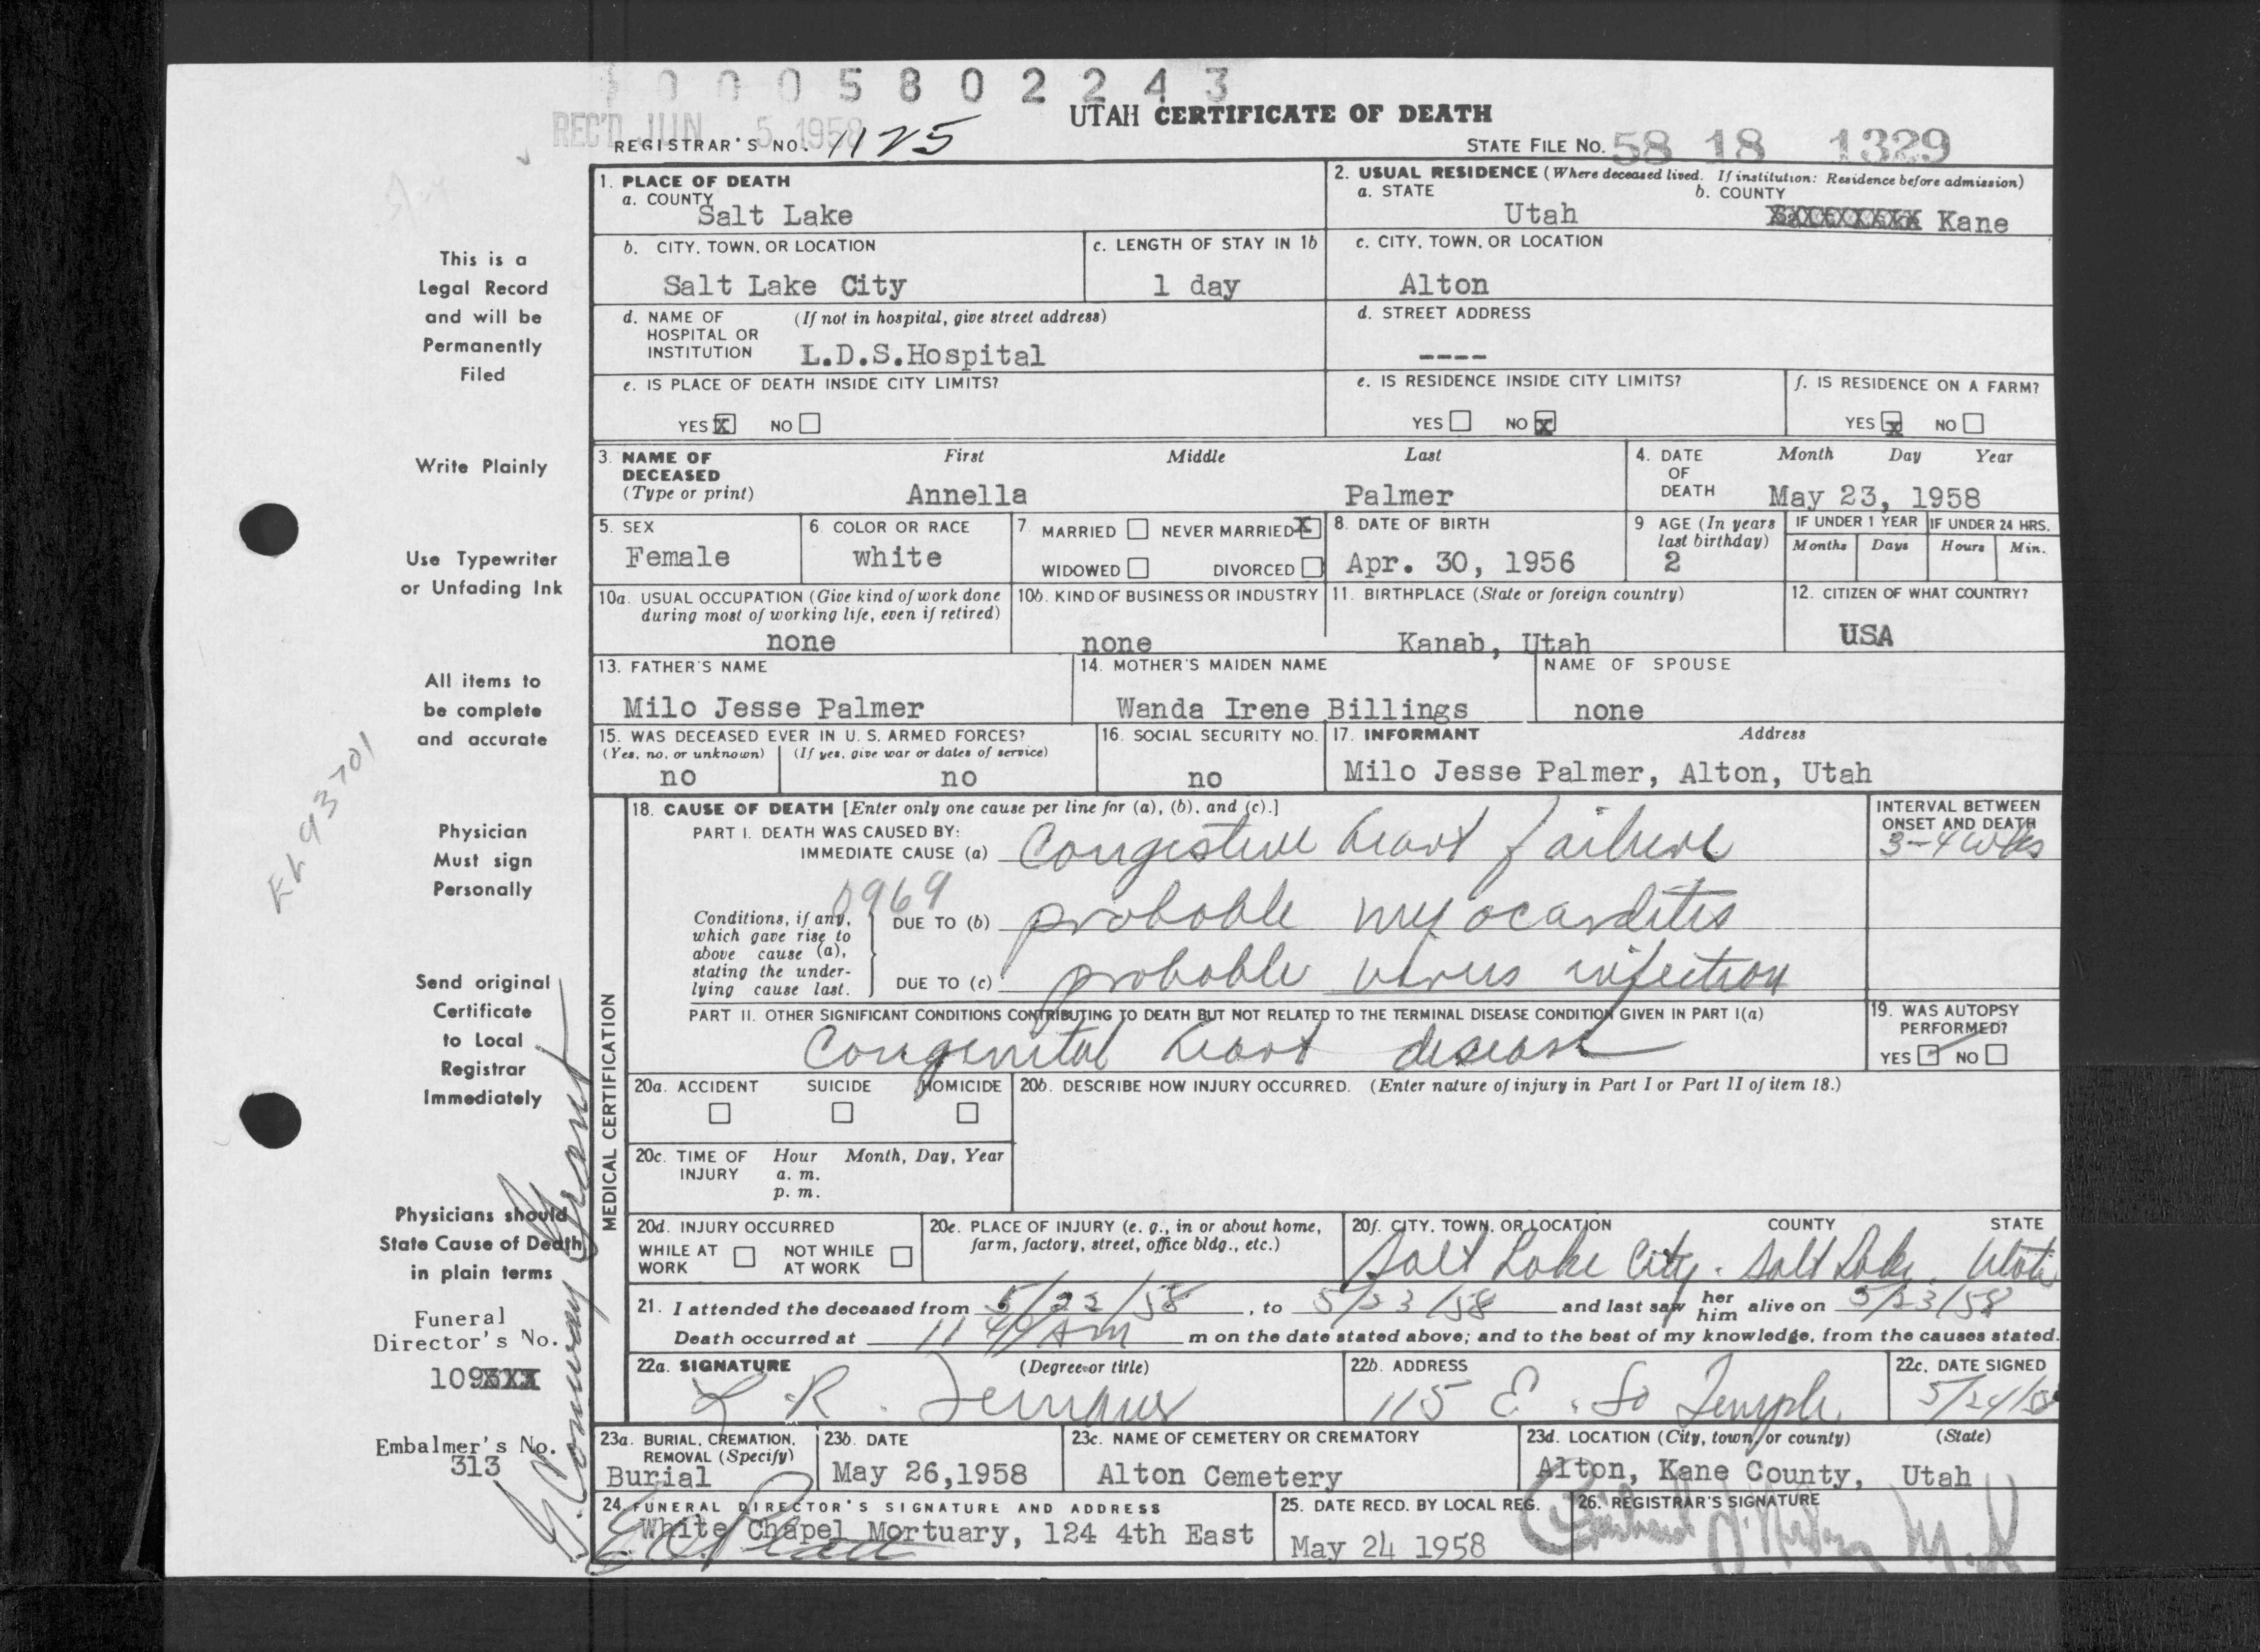 0 0 0 5 8 0 2 2 4 3
UTAH CERTIFICATE OF DEATH
REC'D JUN 5 1958
REGISTRAR'S NO. 1125
STATE FILE NO. 58 18 1329
1. PLACE OF DEATH
a. COUNTY
Salt Lake
2. USUAL RESIDENCE (Where deceased lived. If institution: Residence before admission)
a. STATE b. COUNTY
Utah Kane
b. CITY, TOWN, OR LOCATION
Salt Lake City
c. LENGTH OF STAY IN 1b
1 day
c. CITY, TOWN, OR LOCATION
Alton
d. NAME OF HOSPITAL OR INSTITUTION (If not in hospital, give street address)
L.D.S.Hospital
d. STREET ADDRESS
----
e. IS PLACE OF DEATH INSIDE CITY LIMITS?
YES X NO
e. IS RESIDENCE INSIDE CITY LIMITS?
YES NO X
f. IS RESIDENCE ON A FARM?
YES X NO
3. NAME OF DECEASED (Type or print)
First Middle Last
Annella Palmer
4. DATE OF DEATH
Month Day Year
May 23, 1958
5. SEX
Female
6. COLOR OR RACE
white
7. MARRIED NEVER MARRIED X
WIDOWED DIVORCED
8. DATE OF BIRTH
Apr. 30, 1956
9 AGE (In years last birthday)
2
IF UNDER 1 YEAR
Months Days
IF UNDER 24 HRS.
Hours Min.
10a. USUAL OCCUPATION (Give kind of work done during most of working life, even if retired)
none
10b. KIND OF BUSINESS OR INDUSTRY
none
11. BIRTHPLACE (State or foreign country)
Kanab, Utah
12. CITIZEN OF WHAT COUNTRY?
USA
13. FATHER'S NAME
Milo Jesse Palmer
14. MOTHER'S MAIDEN NAME
Wanda Irene Billings
NAME OF SPOUSE
none
15. WAS DECEASED EVER IN U. S. ARMED FORCES?
(Yes, no, or unknown) (If yes, give war or dates of service)
no no
16. SOCIAL SECURITY NO.
no
17. INFORMANT Address
Milo Jesse Palmer, Alton, Utah
MEDICAL CERTIFICATION
18. CAUSE OF DEATH [Enter only one cause per line for (a), (b), and (c).]
INTERVAL BETWEEN ONSET AND DEATH
PART I. DEATH WAS CAUSED BY:
IMMEDIATE CAUSE (a) Congestive heart failure 3-4 wks
0969
Conditions, if any, which gave rise to above cause (a), stating the underlying cause last.
DUE TO (b) probable myocarditis
DUE TO (c) probable virus infection
PART II. OTHER SIGNIFICANT CONDITIONS CONTRIBUTING TO DEATH BUT NOT RELATED TO THE TERMINAL DISEASE CONDITION GIVEN IN PART I(a)
Congenital heart disease
19. WAS AUTOPSY PERFORMED?
YES NO
20a. ACCIDENT SUICIDE HOMICIDE
20b. DESCRIBE HOW INJURY OCCURRED. (Enter nature of injury in Part I or Part II of item 18.)
20c. TIME OF INJURY Hour Month, Day, Year
a. m.
p. m.
20d. INJURY OCCURRED
WHILE AT WORK NOT WHILE AT WORK
20e. PLACE OF INJURY (e. g., in or about home, farm, factory, street, office bldg., etc.)
20f. CITY, TOWN, OR LOCATION COUNTY STATE
Salt Lake City. Salt Lake. Utah
21. I attended the deceased from 5/22/58, to 5/23/58 and last saw her him alive on 5/23/58
Death occurred at AM m on the date stated above; and to the best of my knowledge, from the causes stated.
22a. SIGNATURE (Degree or title)
L. R.
22b. ADDRESS
115 E. So Temple
22c. DATE SIGNED
5/24/58
23a. BURIAL, CREMATION, REMOVAL (Specify)
Burial
23b. DATE
May 26,1958
23c. NAME OF CEMETERY OR CREMATORY
Alton Cemetery
23d. LOCATION (City, town, or county) (State)
Alton, Kane County, Utah
24. FUNERAL DIRECTOR'S SIGNATURE AND ADDRESS
White Chapel Mortuary, 124 4th East
25. DATE RECD. BY LOCAL REG.
May 24 1958
26. REGISTRAR'S SIGNATURE
This is a
Legal Record
and will be
Permanently
Filed
Write Plainly
Use Typewriter
or Unfading Ink
All items to
be complete
and accurate
Physician
Must sign
Personally
Send original
Certificate
to Local
Registrar
Immediately
Physicians should
State Cause of Death
in plain terms
Funeral
Director's No.
109
Embalmer's No.
313